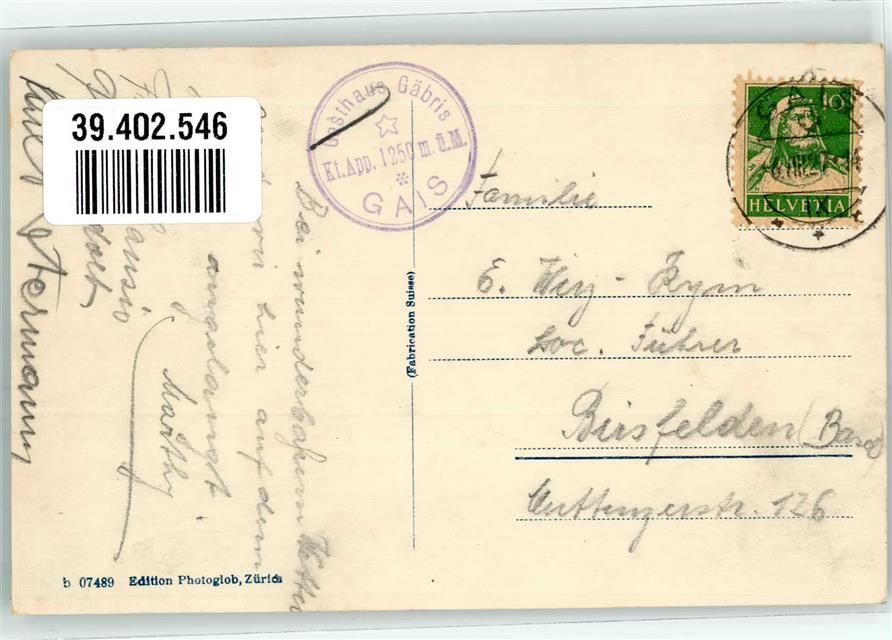 39.402.546
Gasthaus Gäbris
Kt. App. 1250 m. ü. M.
GAIS
GAIS
10
HELVETIA
Familie
E. Wirz - Rym
Loc. Führer
Birsfelden (Basel)
Muttenzerstr. 126
(Fabrication Suisse)
Bei wunderbarem Wetter
sind wir hier auf dem
angelangt.
Marthy
Hermann
b 07489 Edition Photoglob, Zürich